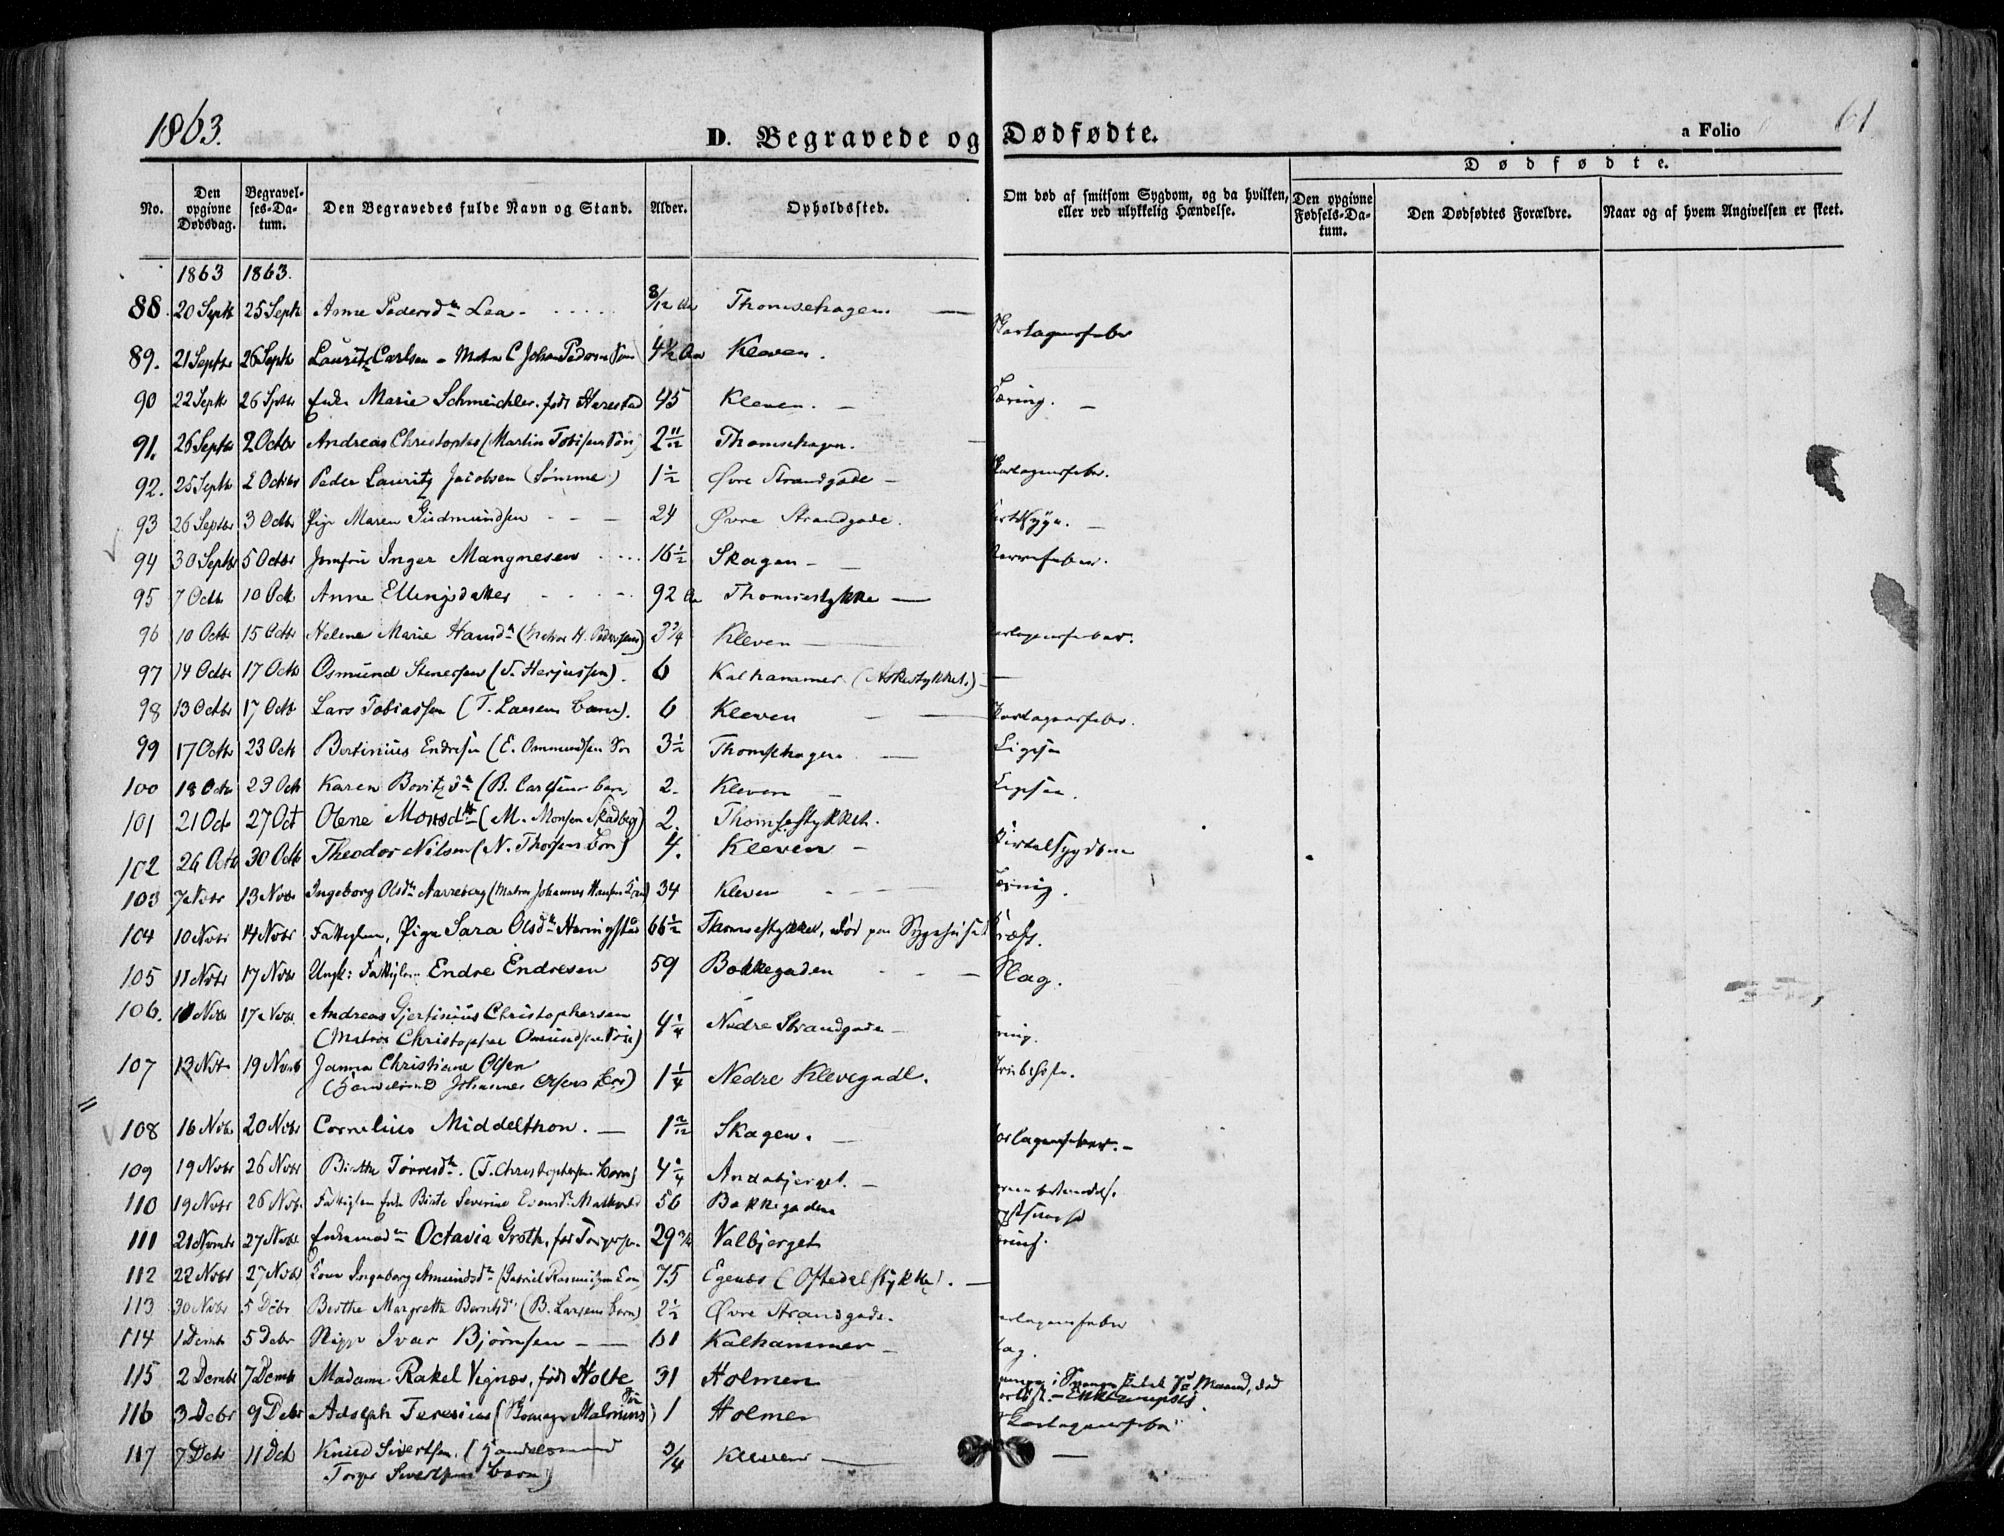 1863.
D. Begravede og Dødfødte.
a Folio 61
Dødfødte.
No. Den opgivne Dødsdag. Begravelses-Datum. Den Begravedes fulde Navn og Stand. Alder. Opholdssted. Om død af smitsom Sygdom, og da hvilken, eller ved ulykkelig Hændelse. Den opgivne Fødsels-Datum. Den Dødfødtes Forældre. Naar og af hvem Angivelsen er skeet.
1863 1863.
88. 20 Septr 25 Septr Anne Pedersdtr Lea 8/12 Aar Thomsehagen
89. 21 Septbr 26 Septbr Lauritz Carlsen Johan Pedersen Søn 4 1/2 Aar Kleven. Skarlagensfeber
90 22 Septbr 26 Septbr Enke Marie Schmeichler, født Harestad 45 Kleven. Tæring.
91. 26 Septbr 2 Octbr Andreas Christopher (Martin Tobisens Søn) 2 11/12 Thomsehagen.
92. 25 Septbr 2 Octbr Peder Lauritz Jacobsen (Sømme) 1 1/2 Øvre Strandgade Skarlagensfeber.
93 26 Septbr 3 Octbr Pige Maren Gudmundsen 24 Øvre Strandgade.
94 30 Septbr 5 Octbr Jomfru Inger Mangnesen 16 1/2 Skagen Nervefeber.
95 7 Octbr 10 Octb Anne Ellingsdatter 92 Aar Thomsestykke
96 10 Octb 15 Octbr Helene Marie Hansdtr (Matros H. Pedersens) 3 3/4 Kleven Skarlagensfeber.
97 14 Octbr 17 Octb Osmund Stenersen (S. Herjussen). 6 Kalhammer (Askestykket.)
98 13 Octbr 17 Octb Lars Tobiassen (T. Larsens barn). 6 Kleven Skarlagensfeber.
99 17 Octbr 23 Octb Bertinius Endresen (E. Ommundsen Søn 3 1/2 Thomsehagen. Ligesaa
100 18 Octr 23 Oct Karen Boritzdtr (B. Carlsens barn) 2. Kleven Ligesaa.
101 21 Oct 27 Oct Olene Monsdtr (M. Monsen Skadberg) 2. Thomsestykket.
102 26 Octb 30 Octb Theodor Nilsen (N. Thorsens barn) 4. Kleven Kirtelsygdom
103 7 Novbr 13 Novbr Ingeborg Olsdtr Aarreberg (Matros Johannes Hansens Kone) 34 Kleven Tæring.
104 10 Novbr 14 Novbr Fattiglem, Pige Sara Olsdtr Haringstad 66 1/2 Thomsestykket, død paa Sygehuset Kræft.
105 11 Novbr 17 Novbr Ungk: Fattiglem Endre Endresen 59 Bakkegaden Slag.
106. 11 Novbr 17 Novbr Andreas Gjertinius Christophersen
(Matros Christopher Omundsens Søn) 4 1/4 Nedre Strandgade
107 13 Novbr 19 Novbr Janna Christiane Olsen
(Handelsmand Johannes Olsens barn) 1 1/4 Nedre Klevegade. Strubehoste.
108 16 Novbr 20 Novbr Cornelius Middelthon. 1 2/12 Skagen. Skarlagensfeber.
109 19 Novbr 26 Novbr Birthe Tørresdtr. (T. Christophersens barn) 4 1/4 Andabjerget.
110 19 Novbr 26 Novbr Fattiglem Enke Birte Severine 56 Bakkegaden
111 21 Novbr 27 Novbr Enkemadm Octavia Groth, fød Torgersen 29 3/4 Valbjerget
112 22 Novbr 27 Novbr Kone Ingeborg Amundsdtr (Gabriel Rasmussens Kone) 75 Egenæs (Oftedalstykke).
113 30 Novbr 5 Debr Berthe Margrethe Berntsdtr (B. Larsens barn) 2 1/2 Øvre Strandgade. Skarlagensfeber
114 1 Decmbr 5 Debr Ivar Bjørnsen 61 Kalhammer Slag.
115 2 Decmbr 7 Decmb Madame Rakel Vignæs, født Holte 31 Holmen
116 3 Debr 9 Debr Adolph Teresius (Malmins Søn) 1 Holmen Skarlagensfeber
117 7 Debr 11 Deb Knud Sivertsen, (Handelsmand
Torger Sivertsens barn) 3/4 Kleven